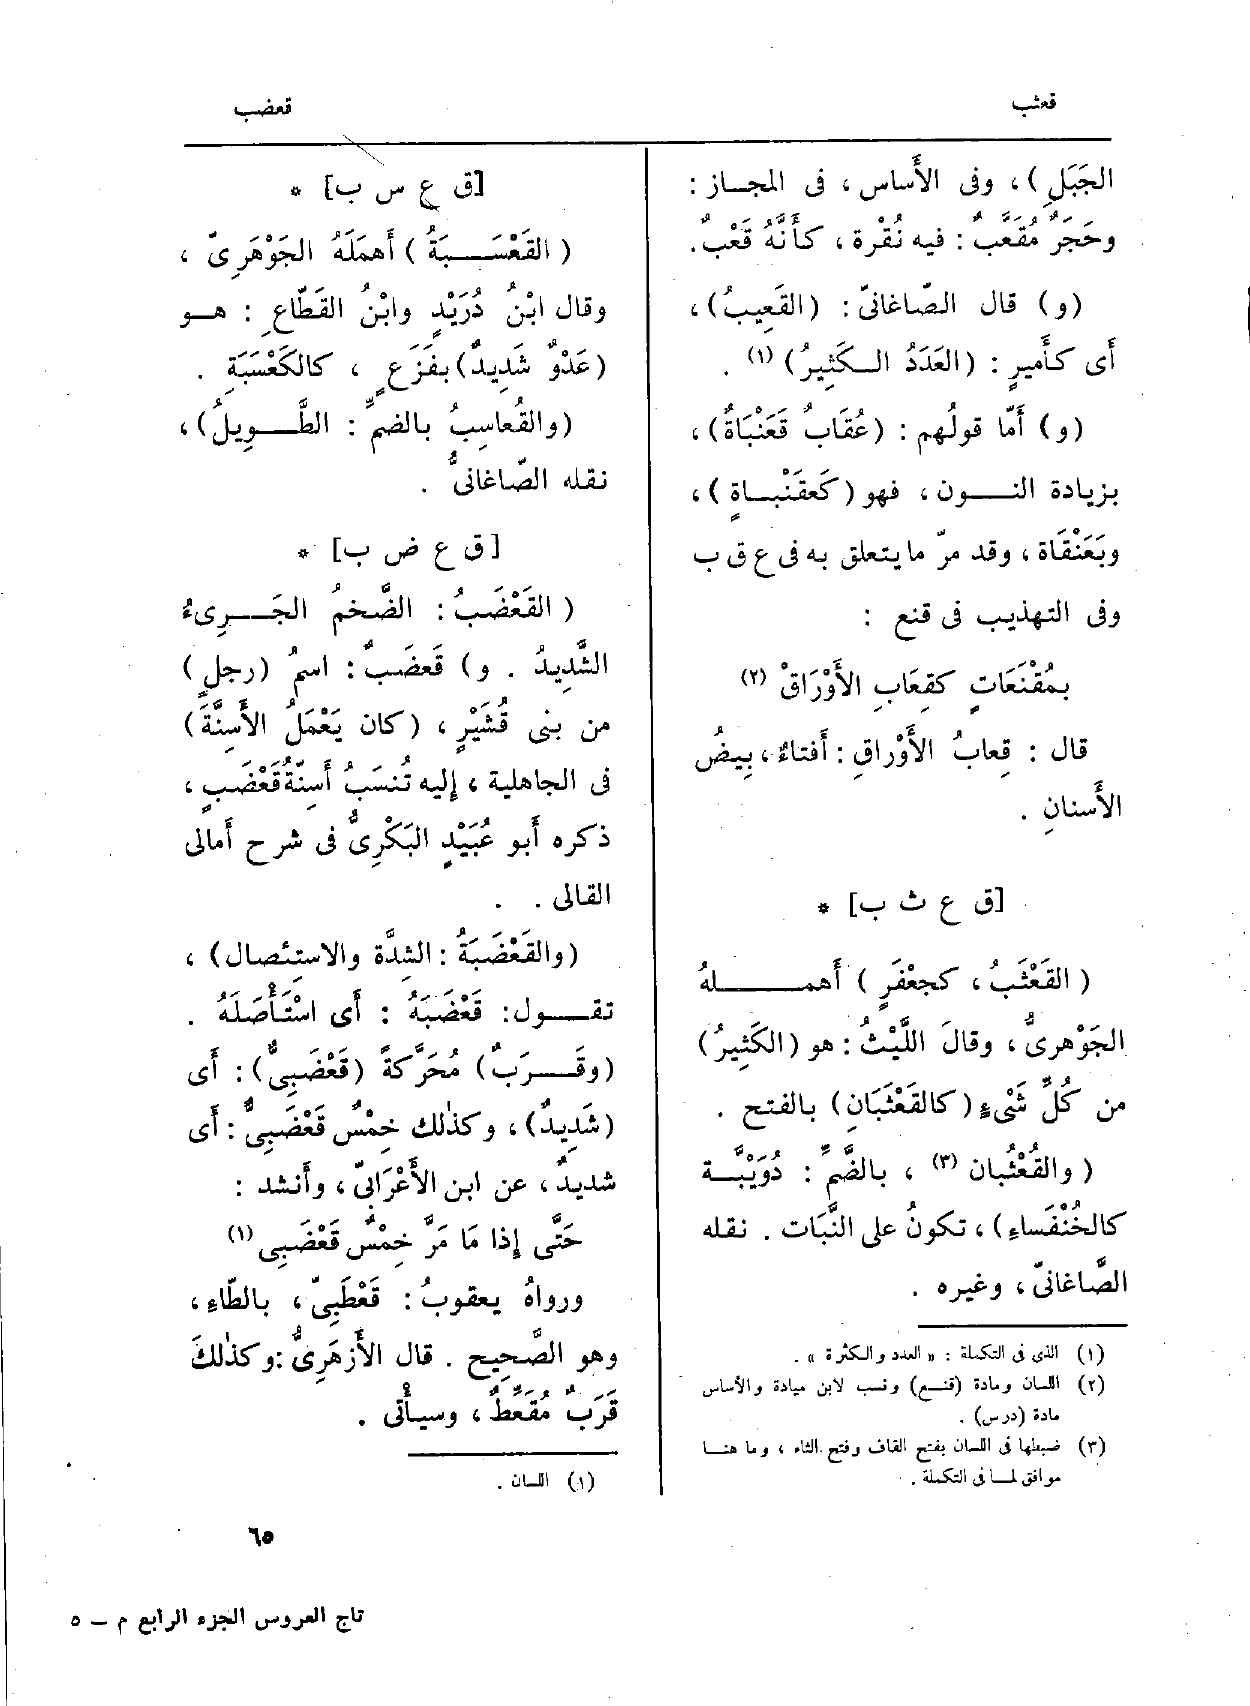 قعثب
قعضب
الجَبَلِ)، وفى الأَساس، فى المجاز :
وحَجَرٌ مُقَعَّبٌ : فيه نُقْرة، كأَنَّهُ قَعْبٌ.
(و) قال الصّاغانىّ : (القَعِيبُ)،
أَى كأَمِيرٍ : (العَدَدُ الكَثِيرُ) (١) .
(و) أَمّا قولُهم : (عُقَابٌ قَعَنْبَاةٌ)،
بزيادة النون، فهو (كَعَقَنْبَاةٍ)،
وبَعَنْقَاة، وقد مرّ ما يتعلق به فى ع ق ب
وفى التهذيب فى قنع :
بمُقْنَعَاتٍ كقِعَابِ الأَوْرَاقْ (٢)
قال : قِعابُ الأَوْرَاقِ : أَفتاءٌ، بِيضُ
الأَسنانِ .
[ق ع ث ب] *
(القَعْثَبُ، كجعْفَرٍ) أَهملهُ
الجَوْهرىُّ، وقالَ اللَّيْثُ : هو (الكَثِيرُ)
من كُلِّ شَىْءٍ (كالقَعْثَبَانِ) بالفتح .
(والقُعْثُبان (٣)، بالضَّمِّ : دُوَيْبَّة
كالخُنْفَساءِ)، تكونُ على النَّبَات . نقله
الصَّاغانىّ، وغيره .
(١) الذى فى التكملة : « العدد والكثرة » .
(٢) اللسان ومادة (قنع) ونسب لابن ميادة والأساس
مادة (درس) .
(٣) ضبطها فى اللسان بفتح القاف وفتح الثاء، وما هنا
موافق لما فى التكملة .
[ق ع س ب] *
(القَعْسَبَةُ) أَهملَهُ الجَوْهَرِىّ،
وقال ابْنُ دُرَيْدٍ وابْنُ القَطّاعِ : هو
(عَدْوٌ شَدِيدٌ) بفَزَعٍ، كالكَعْسَبَةِ .
(والقُعاسِبُ بالضمِّ : الطَّوِيلُ)،
نقله الصّاغانىُّ .
[ق ع ض ب] *
(القَعْضَبُ : الضَّخمُ الجَرِىءُ
الشَّدِيدُ . و) قَعضَبٌ : اسمُ (رجلٍ)
من بنى قُشَيْرٍ، (كان يَعْمَلُ الأَسِنَّةَ)
فى الجاهلية، إليه تُنسَبُ أَسِنَّةُ قَعْضَبٍ،
ذكره أَبو عُبَيْدٍ البَكْرِىُّ فى شرح أَمالى
القالى .
(والقَعْضَبَةُ : الشِدَّة والاستِئصال)،
تقول : قَعْضَبَهُ : أَى اسْتَأْصَلَهُ .
(وقَرَبٌ) مُحَرَّكةً (قَعْضَبِىٌّ) : أَى
(شَدِيدٌ)، وكذٰلك خِمْسٌ قَعْضَبِىٌّ : أَى
شديدٌ، عن ابن الأَعْرَابىّ، وأَنشد :
حَتَّى إِذا مَا مَرَّ خِمْسٌ قَعْضَبِى (١)
ورواهُ يعقوبُ : قَعْطَبِىّ، بالطّاءِ،
وهو الصَّحِيح . قال الأَزهَرِىُّ : وكذٰلكَ
قَرَبٌ مُقَعَّطٌ، وسيأْتى .
(١) اللسان .
٦٥
تاج العروس الجزء الرابع م – ٥